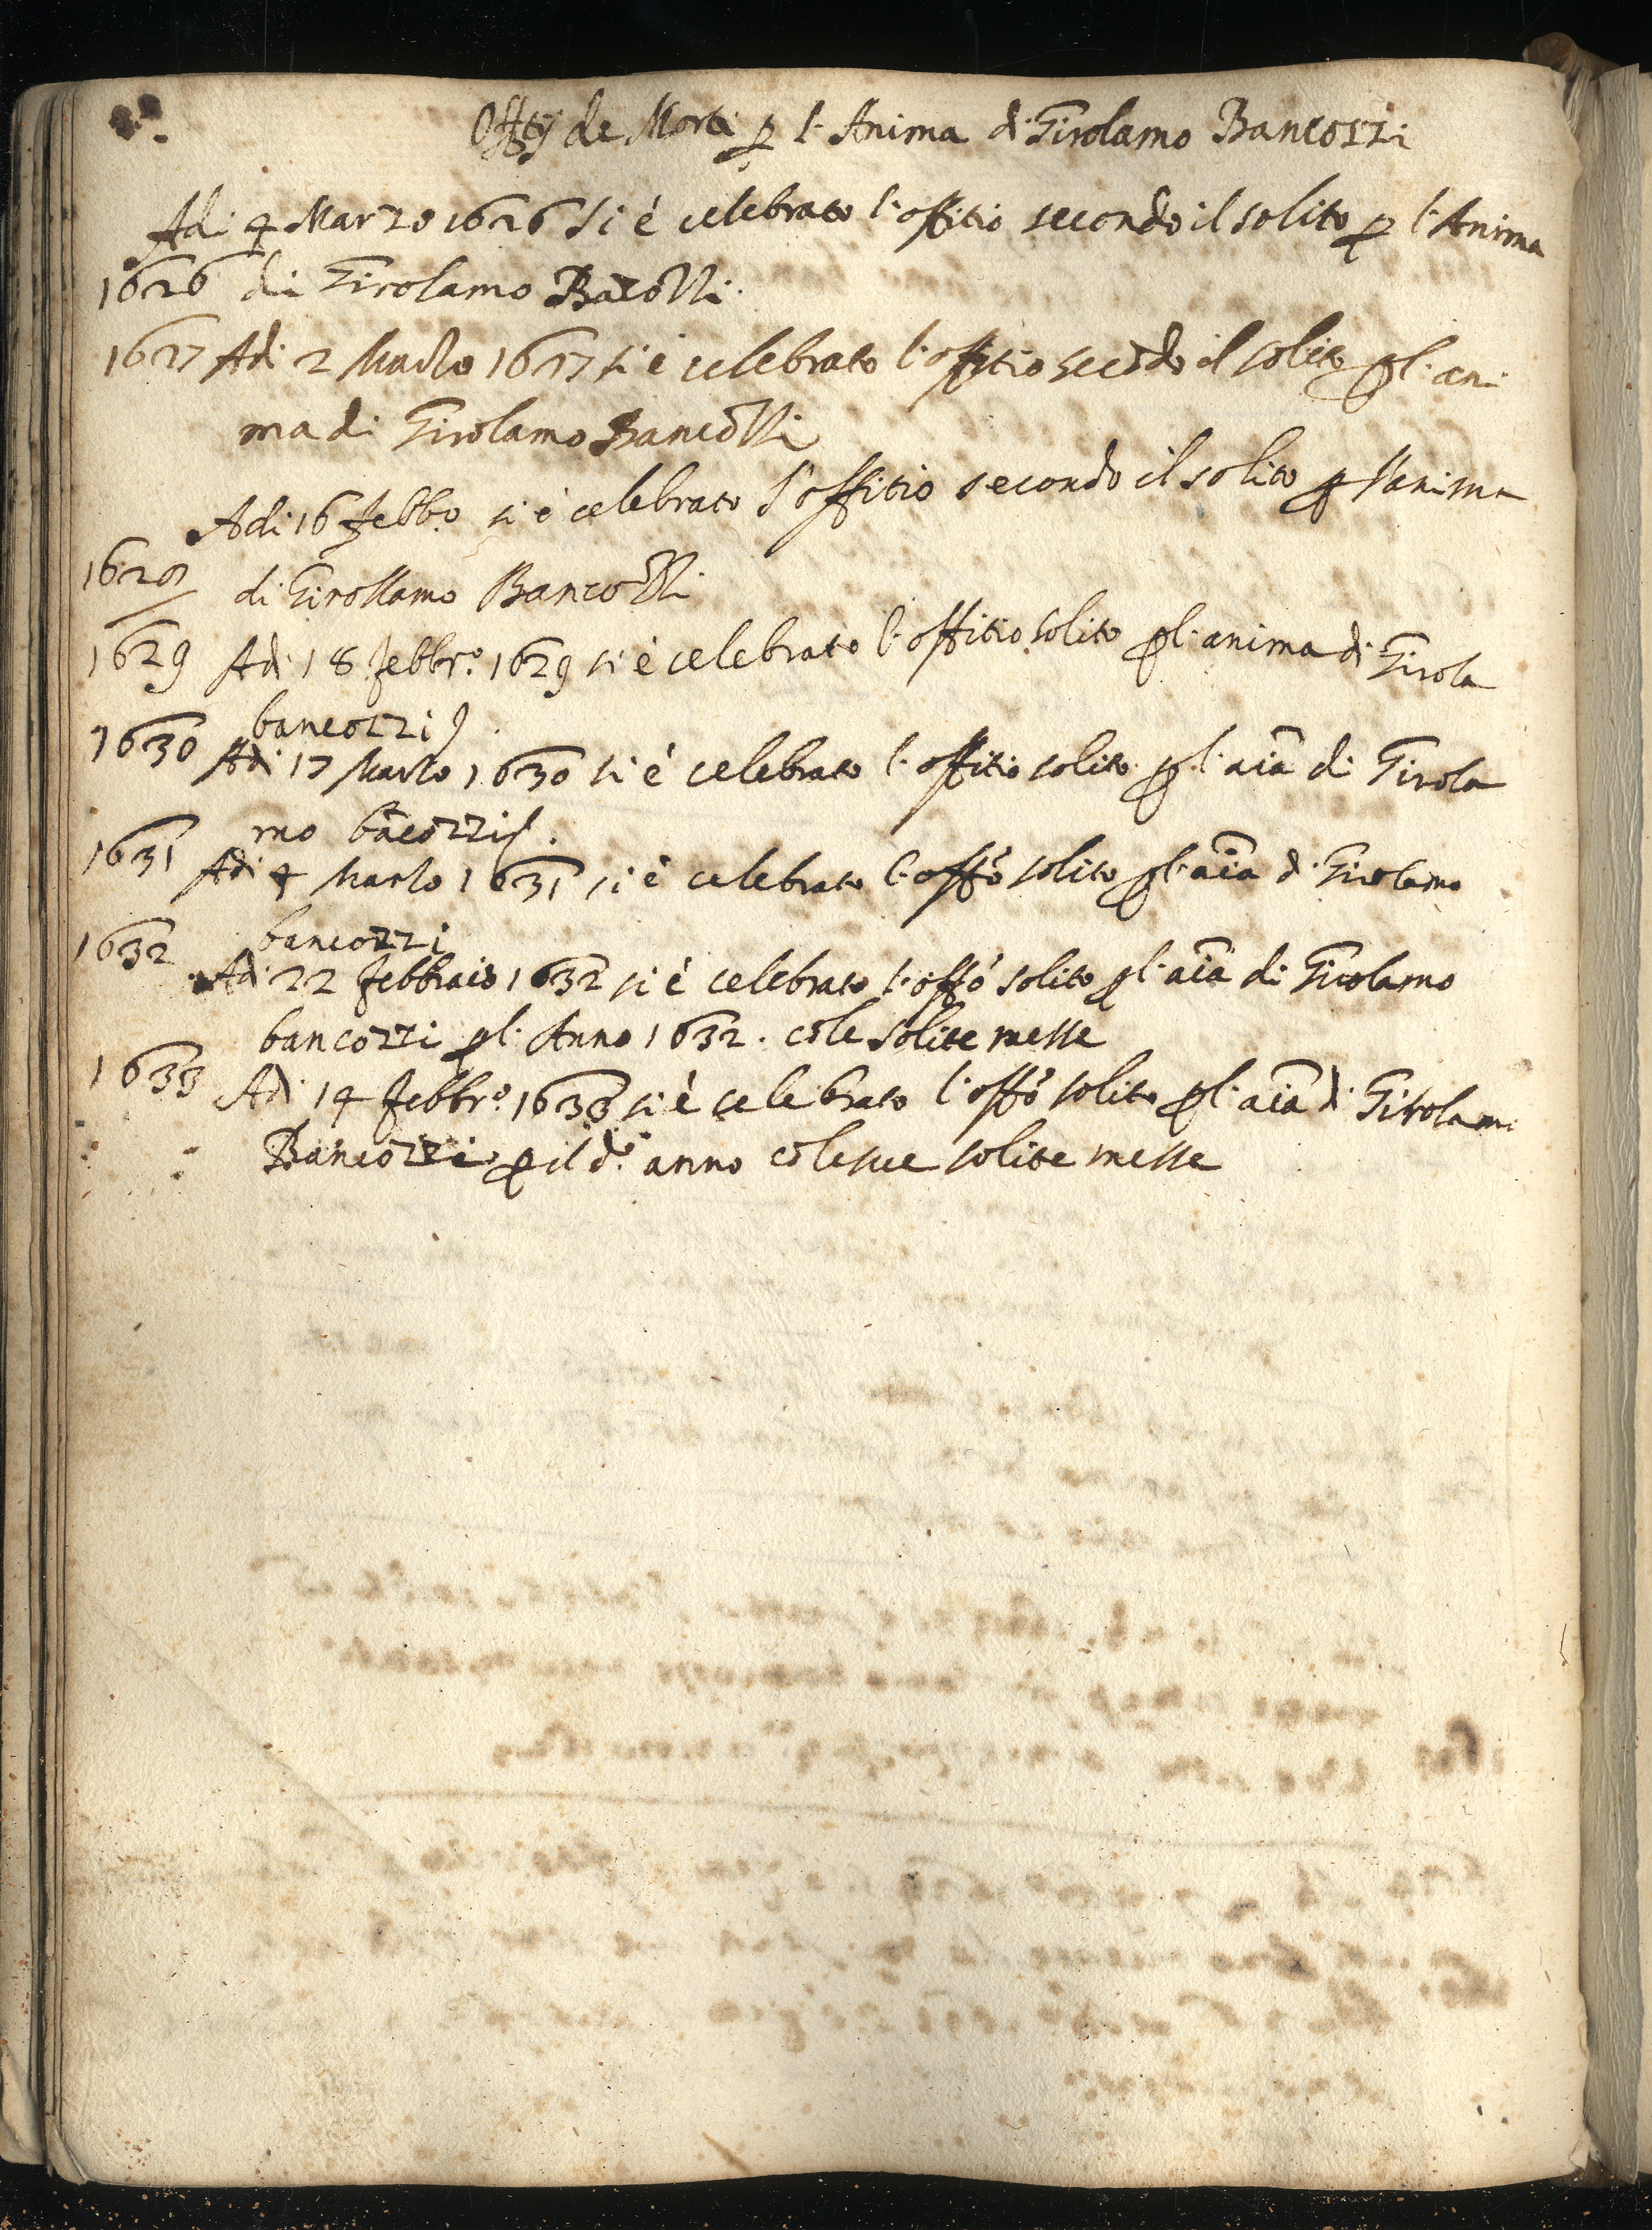 Offitij de Morti p l' Anima di Girolamo Bancozzi
Adi 4 Marzo 1626 si è celebrato l'offitio secondo il solito p l'Anima
1626 di Girolamo Bācozzi.
1627 Adi 2 Marzo 1627 si è celebrato l'offitio secōdo il solito p l'ani
ma di Girolamo Bancozzi
Adi 16 Febb.o si è celebrato l'offitio secondo il solito p l'anima
1628 di Girollamo Bancozzi
1629 Adi 18 Febbr.o 1629 si è celebrato l'offitio solito p l'anima di Girola
bancozzi
1630 Adi 17 Marzo 1630 si è celebrato l'offitio solito p l'aīa di Girola
mo bācozzi.
1631 Adi 4 Marzo 1631 si è celebrato l'offō solito p l'aīa di Girolamo
bancozzi
1632 Adi 22 Febbraio 1632 si è celebrato l'offō solito p l'aīa di Girolamo
bancozzi p l'Anno 1632. cōle solite messe
1633 Adi 14 Febbr.o 1633 si è celebrato l'offō solito p l'aīa di Girolamo
Bancozzi p il d.o anno cōle sue solite messe